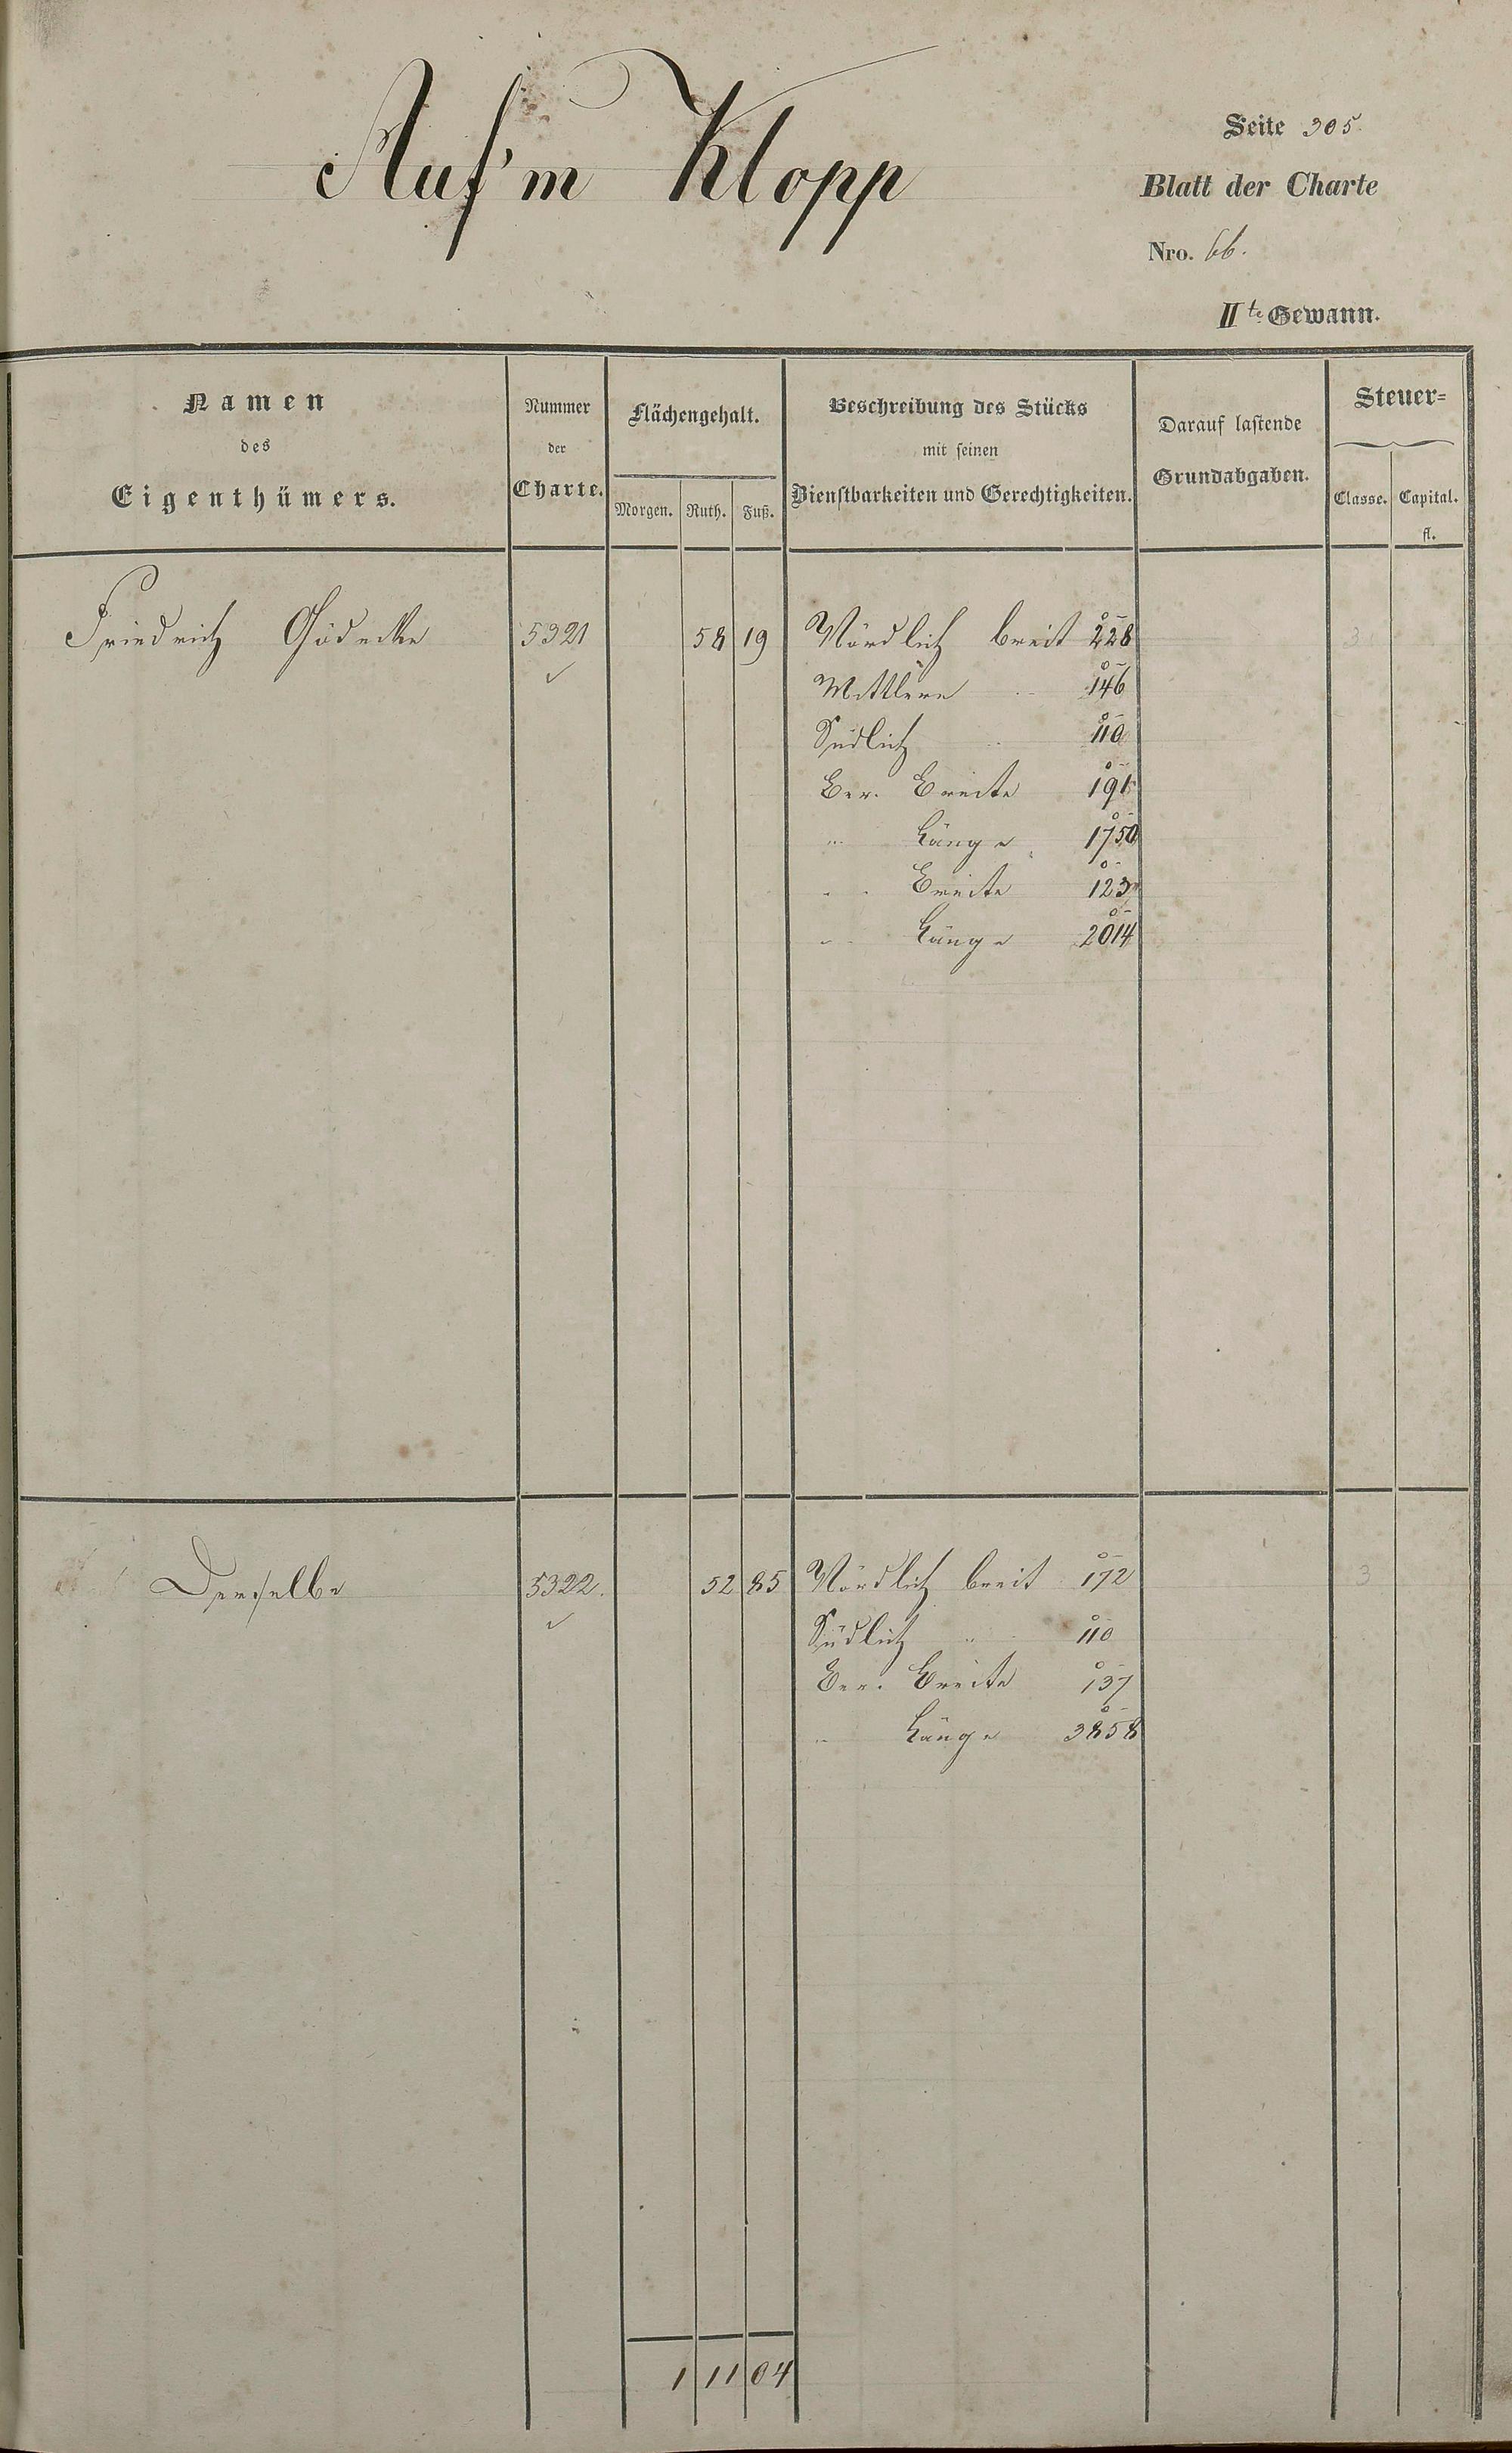 Auf'm Klopp
Seite 305.
Blatt der Charte
Nro. 66.
II te Gewann.
Namen
des
Eigenthümers.
Nummer
der
Charte.
Flächengehalt.
Morgen. Ruth. Fuß.
Beschreibung des Stücks
mit seinen
Dienstbarkeiten und Gerechtigkeiten.
Darauf lastende
Grundabgaben.
Steuer=
Classe. Capital.
fl.
Friedrich Gödecke 5321 58 19 Nördlich breit 228 3
Mittlere " 146
Südlich " 110
Ber. Breite 191
" Länge 1750
" Breite 123
" Länge 2014
Derselbe 5322. 52 85 Nördlich breit 172 3
Südlich " 110
Ber. Breite 137
" Länge 3858
1 11 04